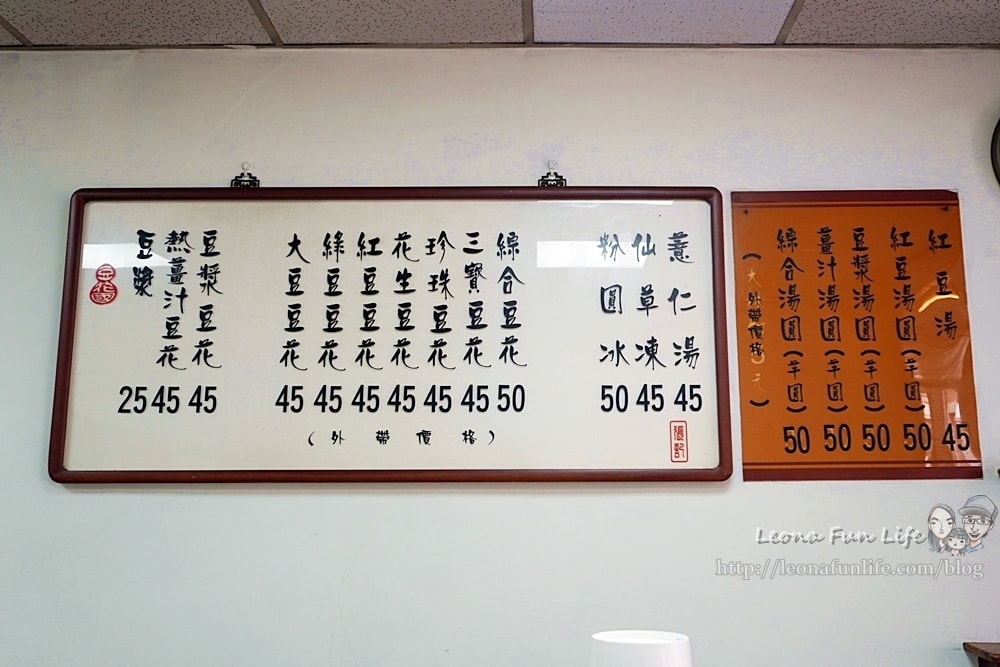 薏仁湯 45
仙草凍 45
粉圓冰 50
綜合豆花 50
三寶豆花 45
珍珠豆花 45
花生豆花 45
紅豆豆花 45
綠豆豆花 45
大豆豆花 45
豆漿豆花 45
熱薑汁豆花 45
豆漿 25
(外帶價格)
張記
豆花國
紅豆湯 45
紅豆湯圓(芋圓) 50
豆漿湯圓(芋圓) 50
薑汁湯圓(芋圓) 50
綜合湯圓(芋圓) 50
Leona Fun Life
http://leonafunlife.com/blog